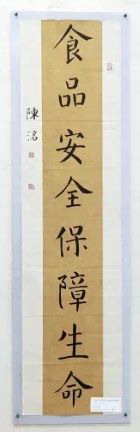 食品安全保障生命
陳洺